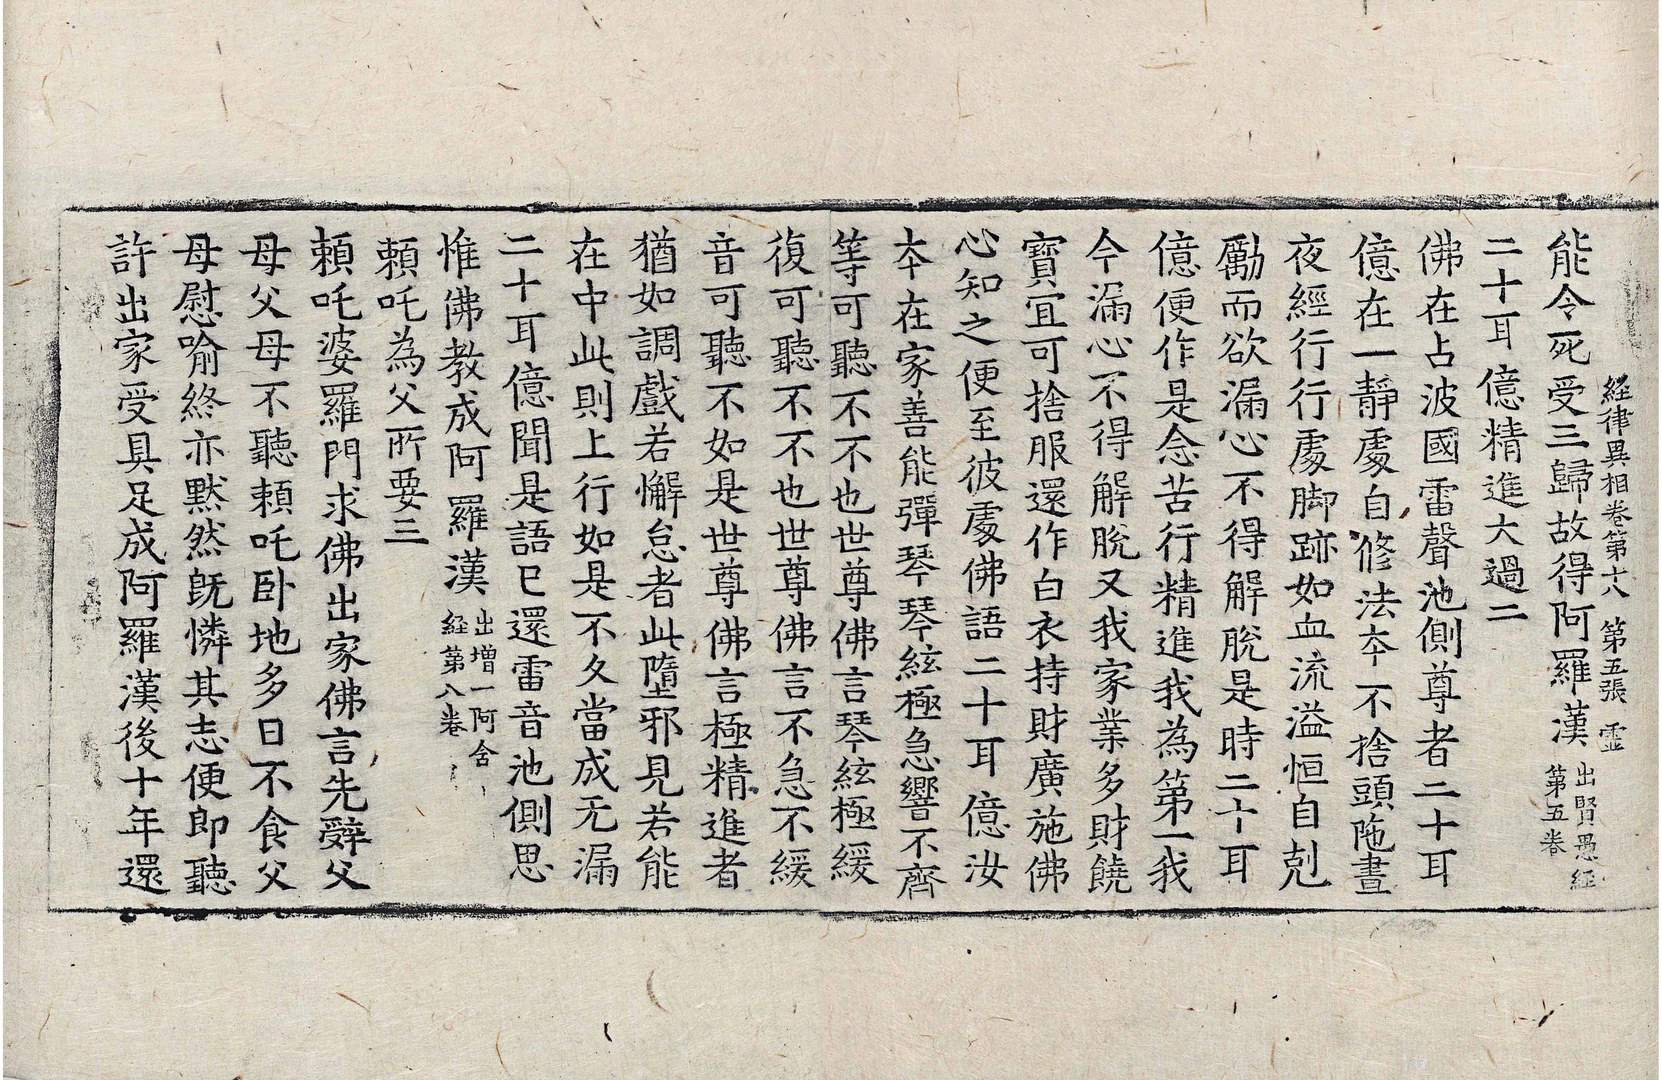 経律異相卷第十八 第五張 霊
能令死受三歸故得阿羅漢 出賢愚経第五卷
二十耳億精進大過二
佛在占波國雷聲池側尊者二十耳
億在一靜處自修法夲不捨頭陁晝
夜經行行處脚跡如血流溢恒自剋
勵而欲漏心不得解脫是時二十耳
億便作是念苦行精進我為第一我
今漏心不得解脫又我家業多財饒
寶宜可捨服還作白衣持財廣施佛
心知之便至彼處佛語二十耳億汝
夲在家善能彈琴琴絃極急響不齊
等可聽不不也世尊佛言琴絃極緩
復可聽不不也世尊佛言不急不緩
音可聽不如是世尊佛言極精進者
猶如調戲若懈怠者此墮邪見若能
在中此則上行如是不久當成无漏
二十耳億聞是語已還雷音池側思
惟佛教成阿羅漢 出增一阿含経第八卷
頼吒為父所要三
頼吒婆羅門求佛出家佛言先辤父
母父母不聽頼吒卧地多日不食父
母慰喻終亦默然旣憐其志便即聽
許出家受具足成阿羅漢後十年還